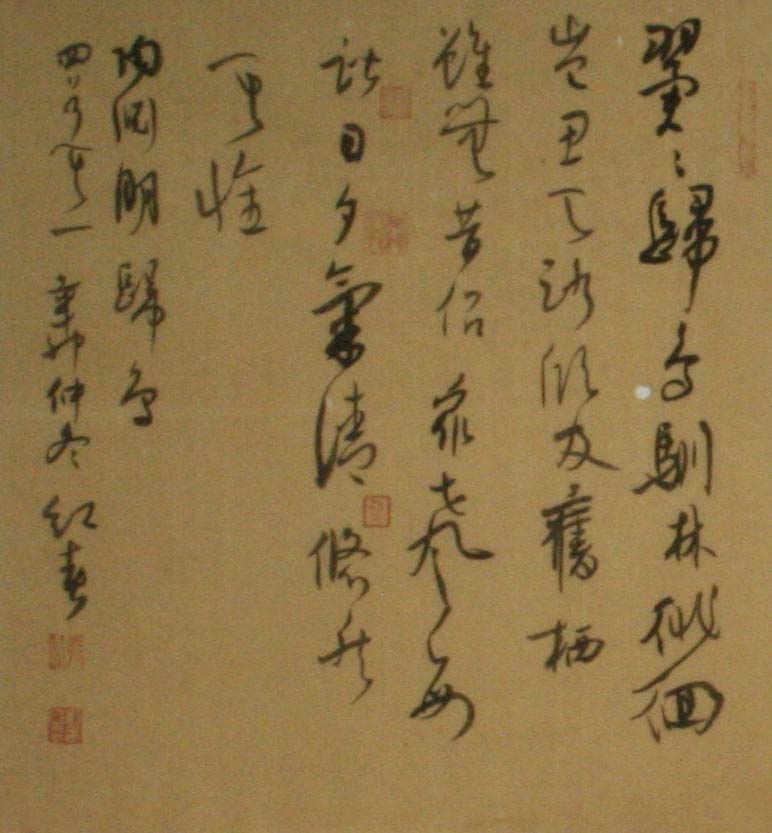 翼〻歸鳥馴林徘徊
豈思天路欣反舊栖
雖無昔侶眾聲每
諧日夕氣清悠然
其懷
陶淵明歸鳥
四首其一 辛卯仲冬 紅